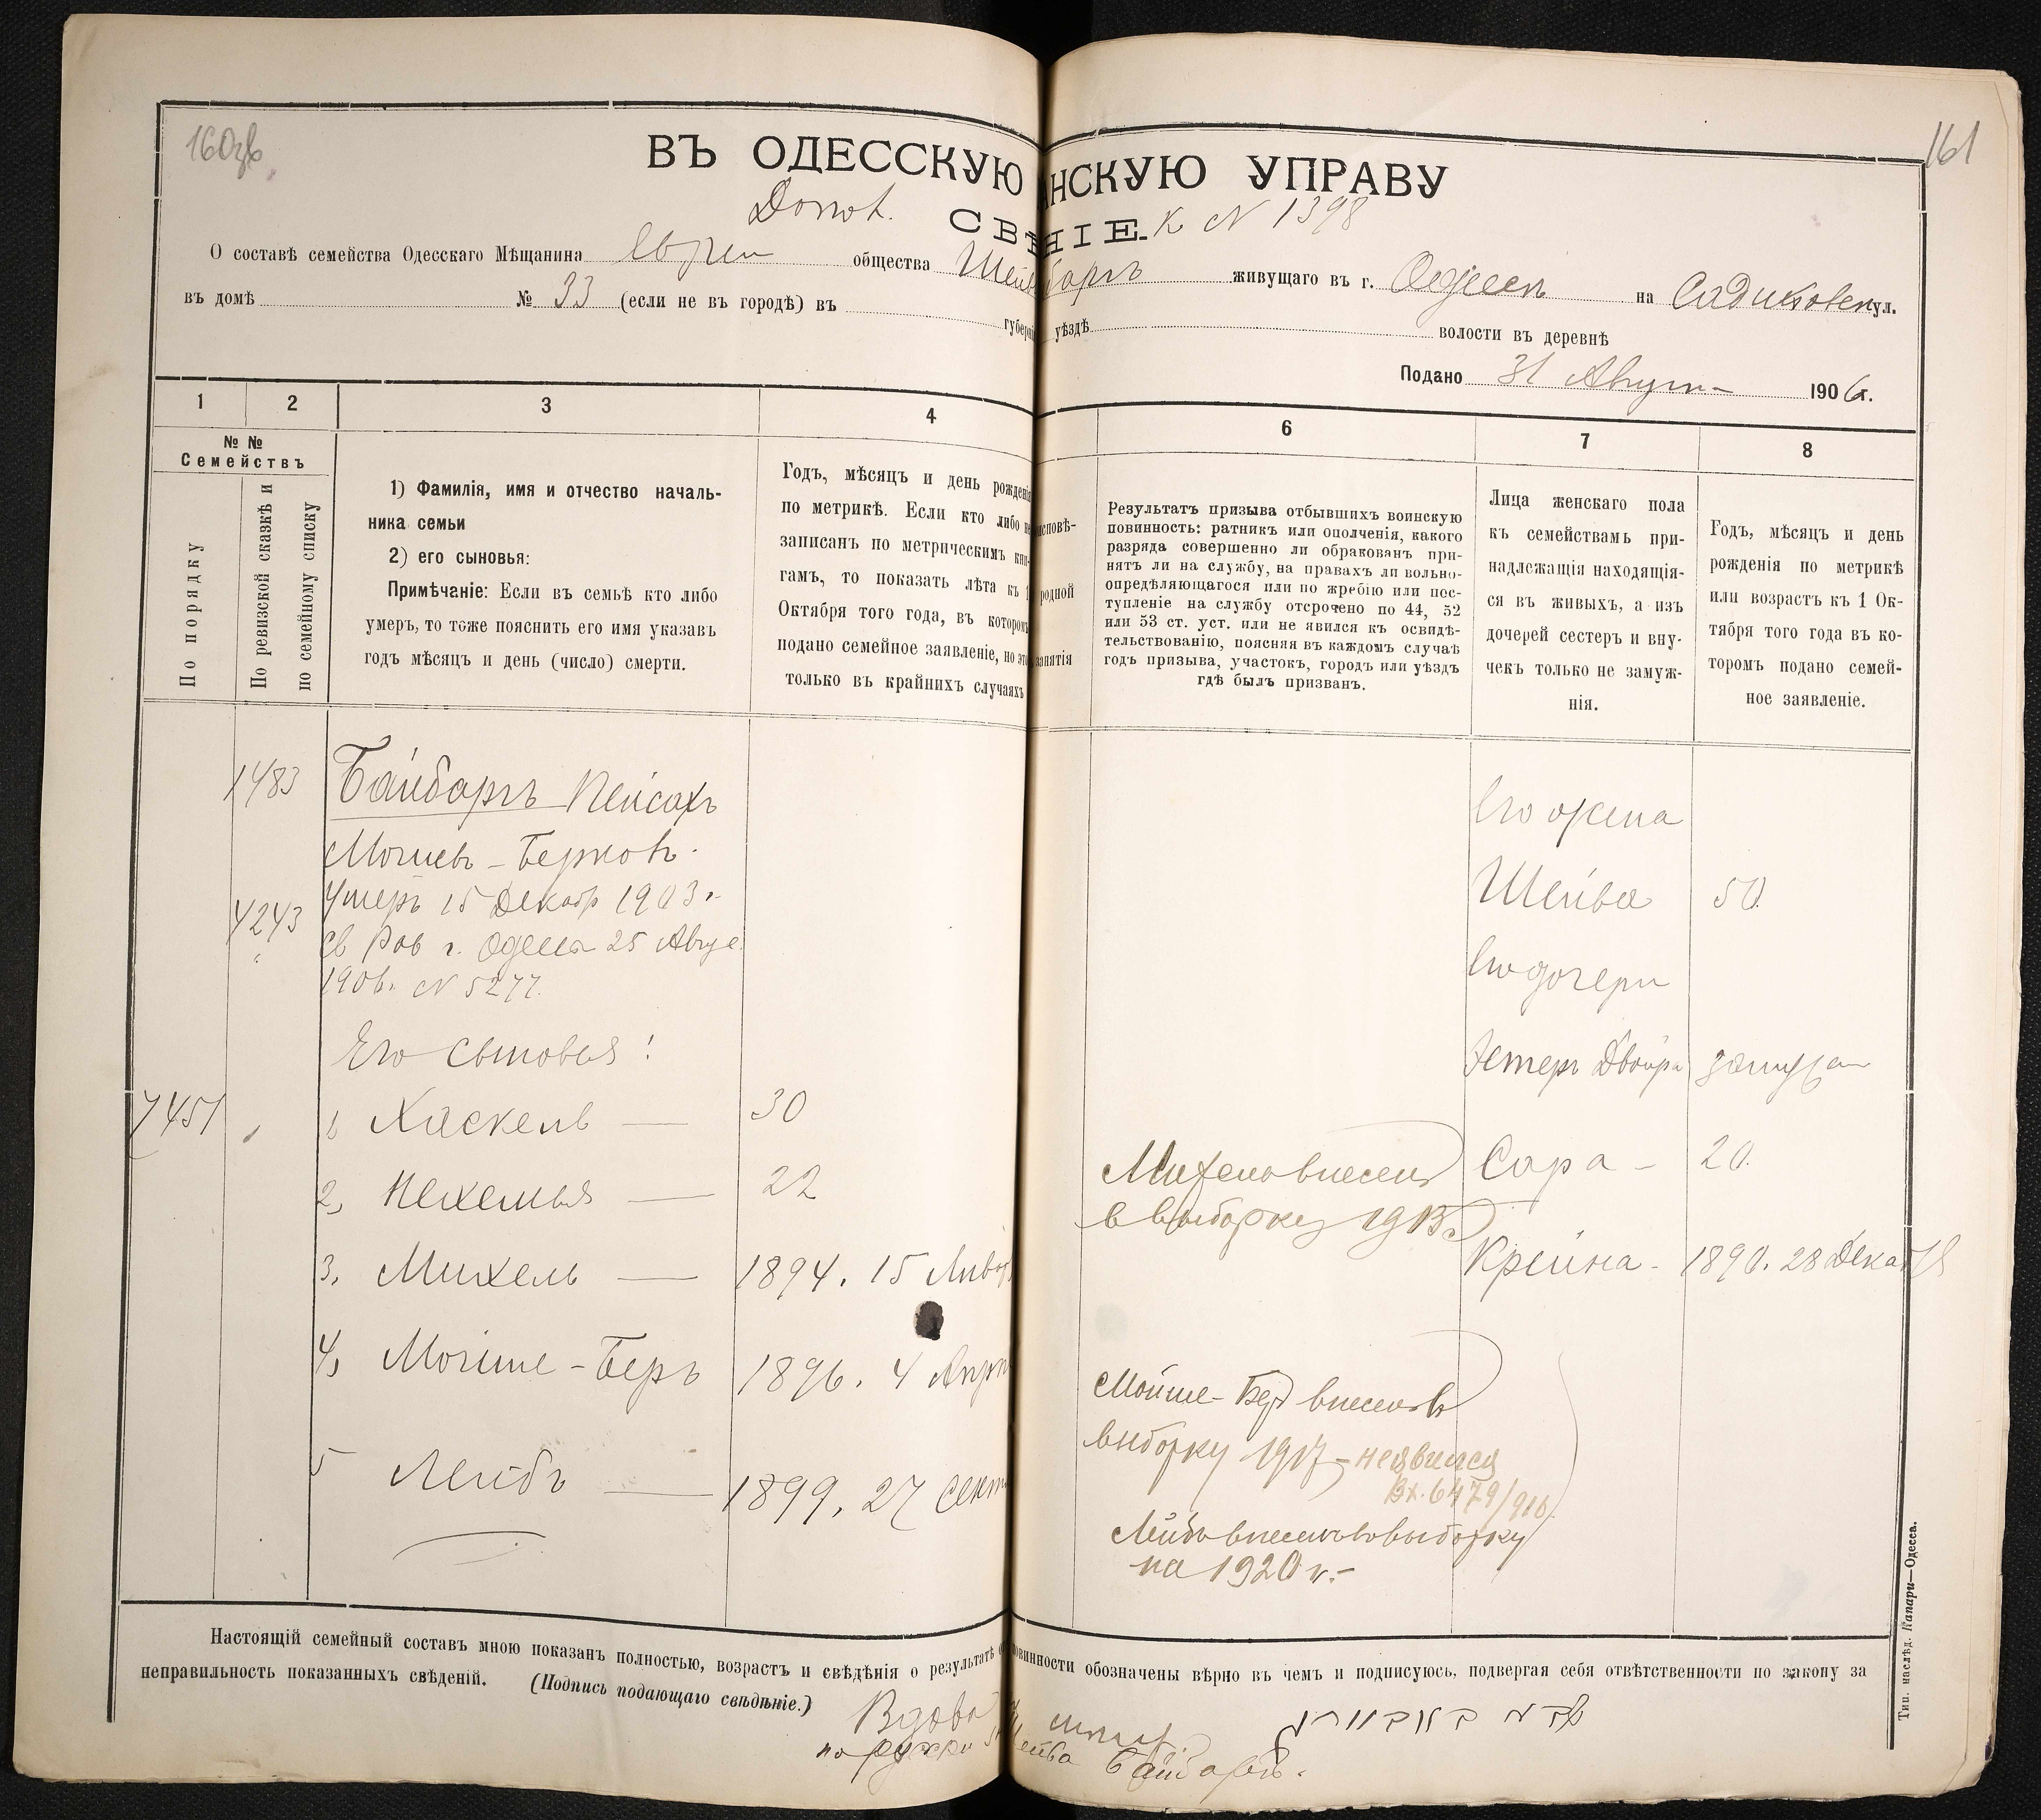 160зв
161
ВЪ ОДЕССКУЮ АНСКУЮ УПРАВУ
СВѢ НІЕ. К N 1398
О составѣ семейства Одесскаго Мѣщанина Еврей общества Шей Байбаргъ живущаго въ г. Одессѣ на Садиковск ул.
въ домѣ № 33 (если не въ городѣ) въ губерніи уѣздѣ волости въ деревнѣ
Подано 31 Август 1906 г.
1 2 3 4 6 7 8
№ №
Семействъ
По порядку
По ревизской сказкѣ и
по семейному списку
1) Фамилія, имя и отчество началь-
ника семьи
2) его сыновья:
Примѣчаніе: Если въ семьѣ кто либо
умеръ, то тоже пояснить его имя указавъ
годъ мѣсяцъ и день (число) смерти.
Годъ, мѣсяцъ и день рожденія
по метрикѣ. Если кто либо не
записанъ по метрическимъ кни-
гамъ, то показать лѣта къ 1
Октября того года, въ которомъ
подано семейное заявленіе, но это
только въ крайнихъ случаяхъ
исповѣ-
родной
занятія
Результатъ призыва отбывшихъ воинскую
повинность: ратникъ или ополченія, какого
разряда совершенно ли обракованъ при-
нятъ ли на службу, на правахъ ли вольно-
опредѣляющагося или по жребію или пос-
тупленіе на службу отсрочено по 44, 52
или 53 ст. уст. или не явился къ освидѣ-
тельствованію, поясняя въ каждомъ случаѣ
годъ призыва, участокъ, городъ или уѣздъ
гдѣ былъ призванъ.
Лица женскаго пола
къ семействамъ при-
надлежащія находящія-
ся въ живыхъ, а изъ
дочерей сестеръ и вну-
чекъ только не замуж-
нія.
Годъ, мѣсяцъ и день
рожденія по метрикѣ
или возрастъ къ 1 Ок-
тября того года въ ко-
торомъ подано семей-
ное заявленіе.
1483 Байбаргъ Пейсахъ
Мошевъ-Берков.
4243 Умеръ 15 Декабр 1903 г.
св Рав г. Одесса 25 Авгус.
1906. N 5277.
Его сыновья:
7451 1, Хаскель — 30
2, Нехемья — 22
3, Михель — 1894. 15 Январ
4, Мойше-Беръ 1896. 4 Апрѣ
5 Лейбъ — 1899, 27 Сент
Михель внесен
в выборку 1915
Мойше-Бер внесен в
выборку 1917 - неявился
Вх. 6479/916
Лейбъ внесенъ в выборку
на 1920 г.-
Его жена
Шейва 50.
Его дочери
Эстеръ Двойра замужем
Сара - 20.
Крейна - 1890. 28 Декабря
Настоящій семейный составъ мною показанъ полностью, возрастъ и свѣдѣнія о результатѣ о повинности обозначены вѣрно въ чемъ и подписуюсь, подвергая себя отвѣтственности по закону за
неправильность показанныхъ свѣдѣній. (Подпись подающаго свѣдѣніе.)
Вдова
по русски Шейва Байбаргъ.
Тип. наслѣд. Капари—Одесса.